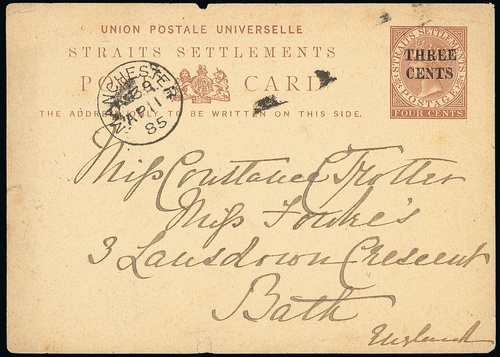 UNION POSTALE UNIVERSELLE
STRAITS SETTLEMENTS
POST CARD
THE ADDRESS ONLY TO BE WRITTEN ON THIS SIDE.
MANCHESTER
AP 11
85
STRAITS SETTLEMENTS
THREE
CENTS
POSTAGE
FOUR CENTS
Miss Constance Trotter
Miss Fowke's
3 Lansdown Crescent
Bath
England